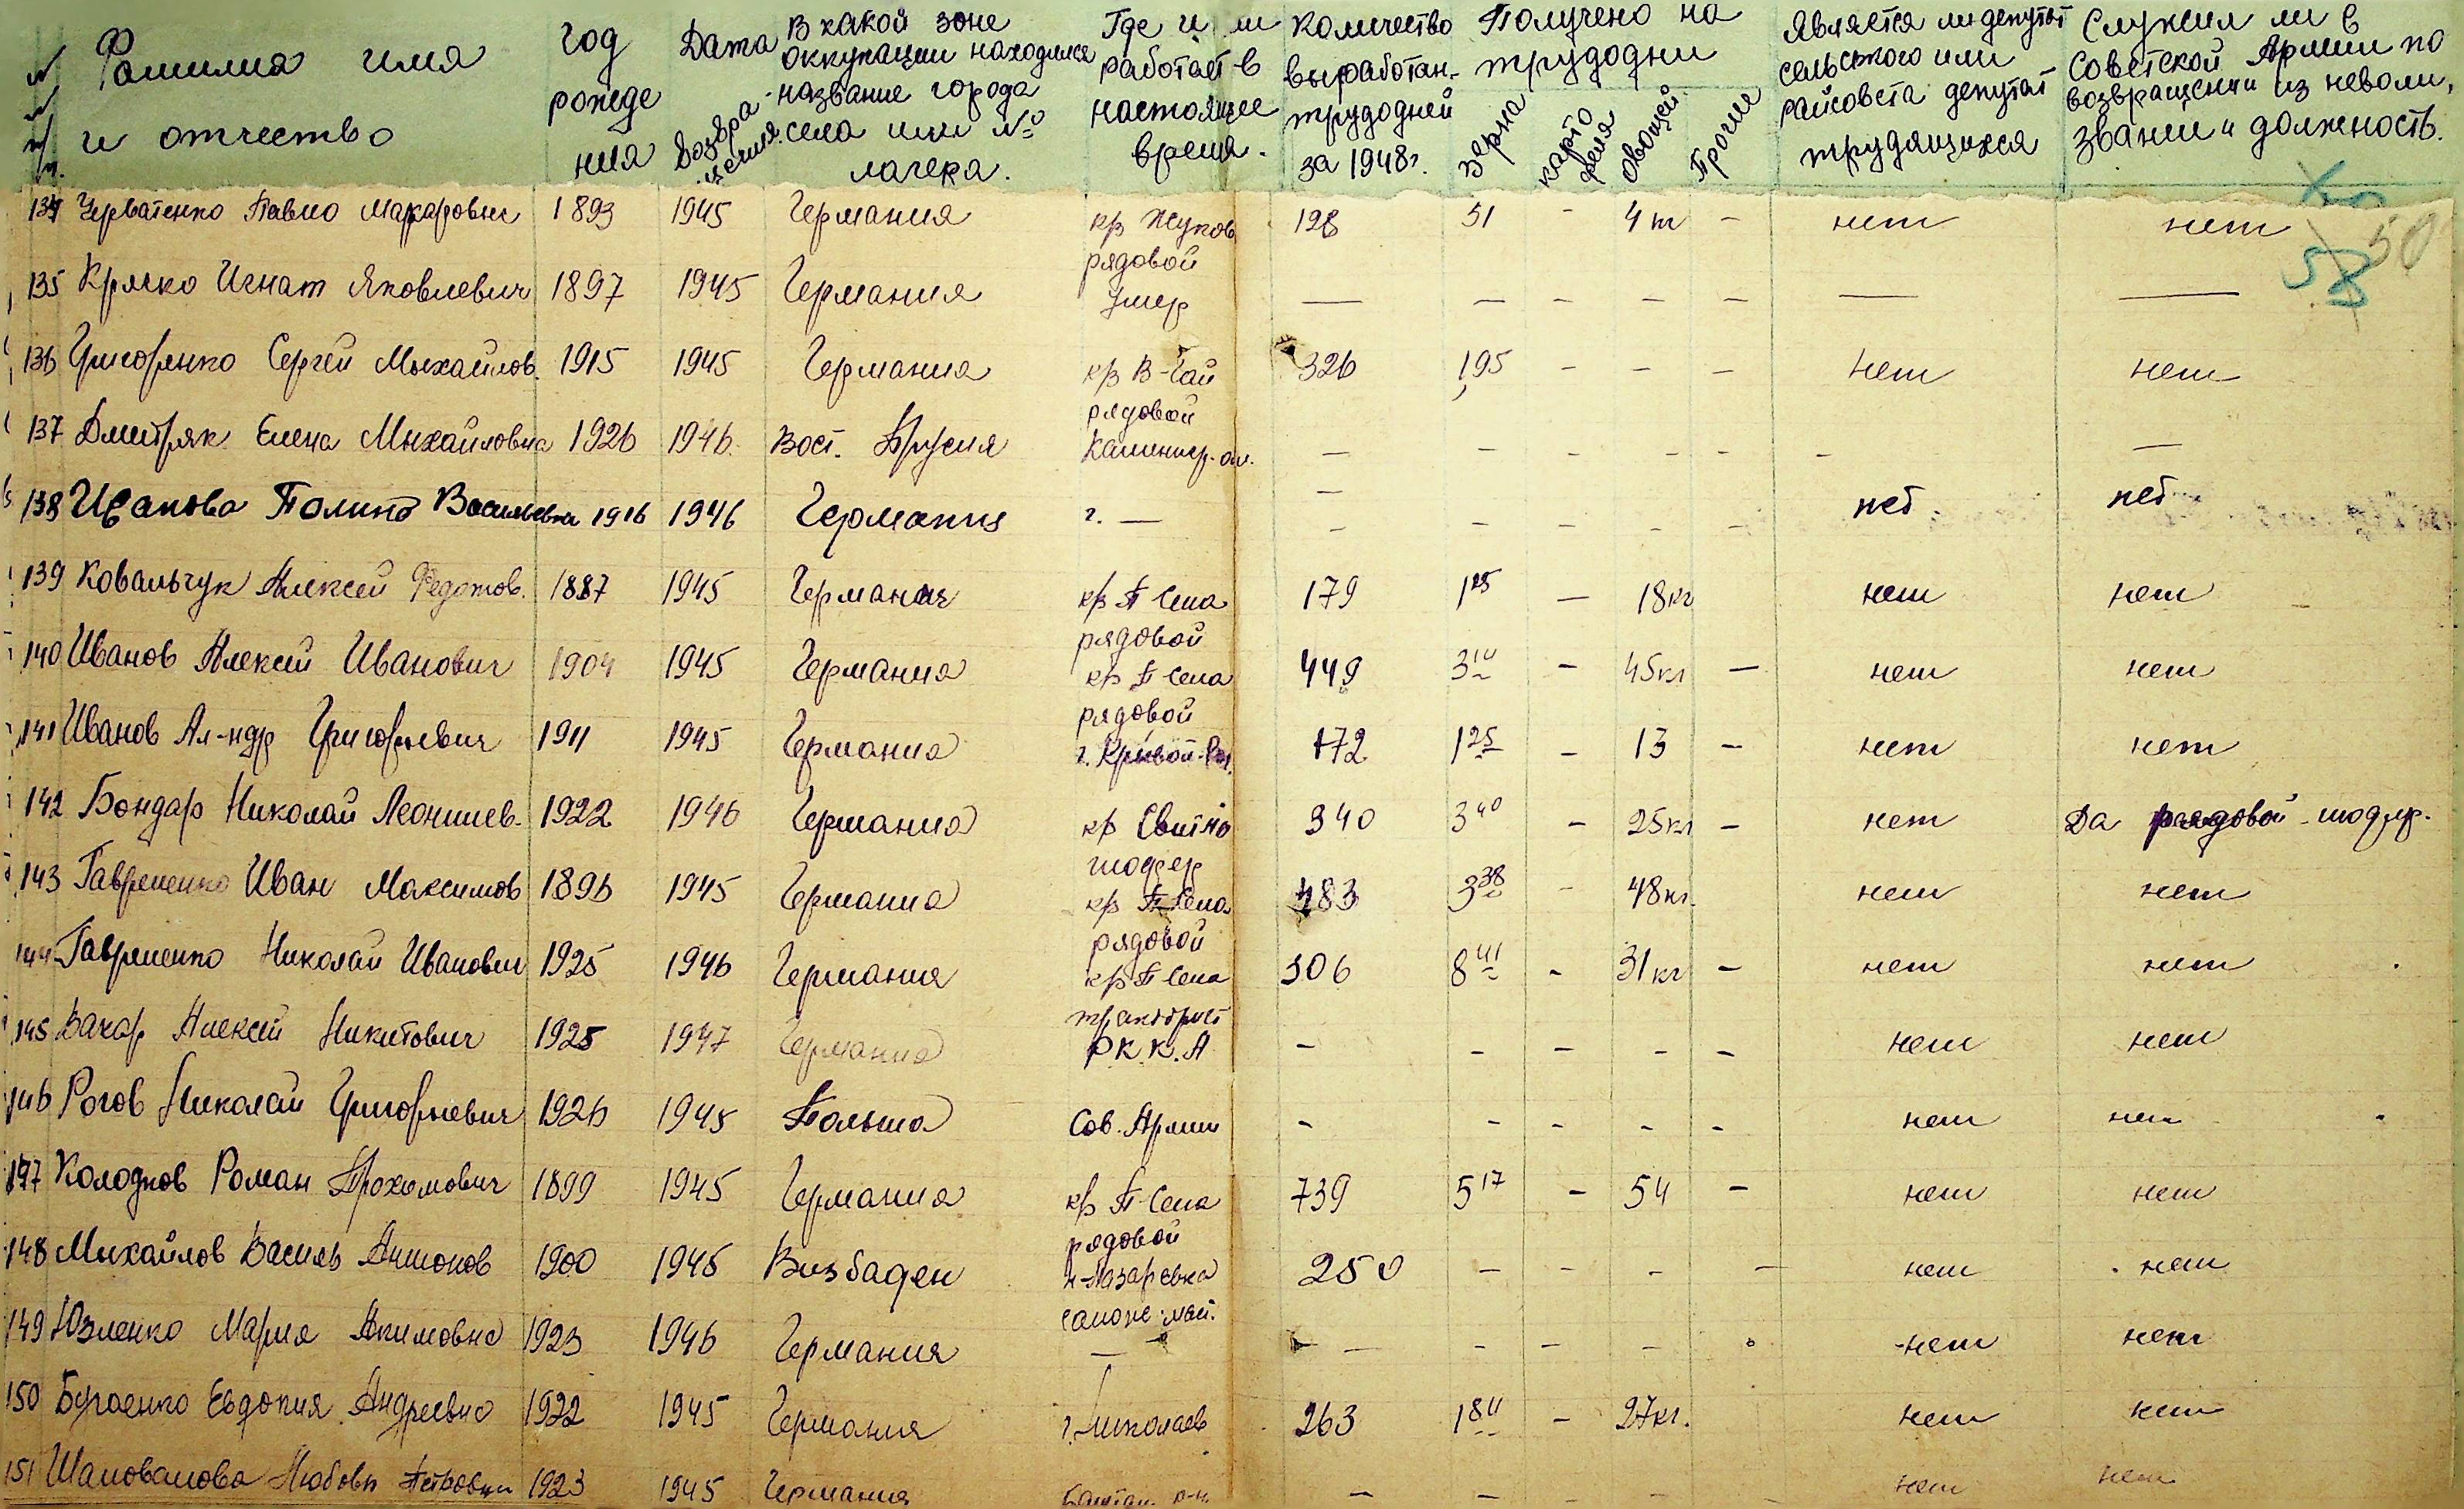 №№ п/п. Фамилия имя и отчество
Год рождения
Дата возвращения.
В какой зоне оккупации находился название города села или № лагеря.
Где и ли работает в настоящее время.
Количество выработан. трудодней за 1948г.
Получено на трудодни
зерна картофеля овощей Прочие
Является ли депутат сельського или райсовета депутат трудящихся
Служил ли в Советской Армии по возвращении из неволи, звании и должность.
50
58
134 Черватенко Павло Макарович 1893 1945 Германия кр Жуков рядовой 128 51 - 4 кг - нет нет
135 Крячко Игнат Яковлевич 1897 1945 Германия Умер — — - - — — —
136 Григоренко Сергей Михайлов. 1915 1945 Германия кр В-Гай рядовой 326 195 - - - нет нет
137 Дмитряк Елена Михайловна 1926 1946. Вост. Прусия Калинингр. ол. — - - - - - —
138 Иванова Полина Васильевна 1916 1946 Германия г. — — - - - - - нет нет
139 Ковальчук Алексей Федотов. 1887 1945 Германия кр П Села рядовой 179 1 25 — 18кг нет нет
140 Иванов Алексей Иванович 1904 1945 Германия кр П Села рядовой 449 3 14 - 45кг - нет нет
141 Иванов Ал-ндр Григорьевич 1911 1945 Германия г. Кривой-Рог. 172 1 25 - 13 - нет нет
142 Бондар Николай Леонтиев. 1922 1946 Германия кр Свитло шоффер 340 3 40 - 25кг - нет Да рядовой - шофер.
143 Гавриленко Иван Максимов 1896 1945 Германия кр П Села рядовой 483 3 38 - 48кг. нет нет
144 Гавриленко Николай Иванович 1925 1946 Германия кр П Села тракторист 306 8 41 - 31кг - нет нет
145 Вахар Алексей Никитович 1925 1947 Германия Р К. К. А - - - - - нет нет
146 Рогов Николай Григорьевич 1926 1945 Польша Сов. Армии - - - - - нет нет
147 Колодков Роман Прохомович 1899 1945 Германия кр П Села рядовой 739 5 17 - 54 - нет нет
148 Михайлов Василь Антонов 1900 1945 Визбаден Н-Лазаревка сапожн. маст. 250 - - - - нет нет
149 Юзленко Мария Акимовна 1923 1946 Германия — — - - - нет нет
150 Бугаенко Евдокия Андреевна 1922 1945 Германия г. Николаев 263 1 84 - 27кг. нет нет
151 Шаповалова Любовь Петровна 1923 1945 Германия Баштан. р-н - - - - нет нет